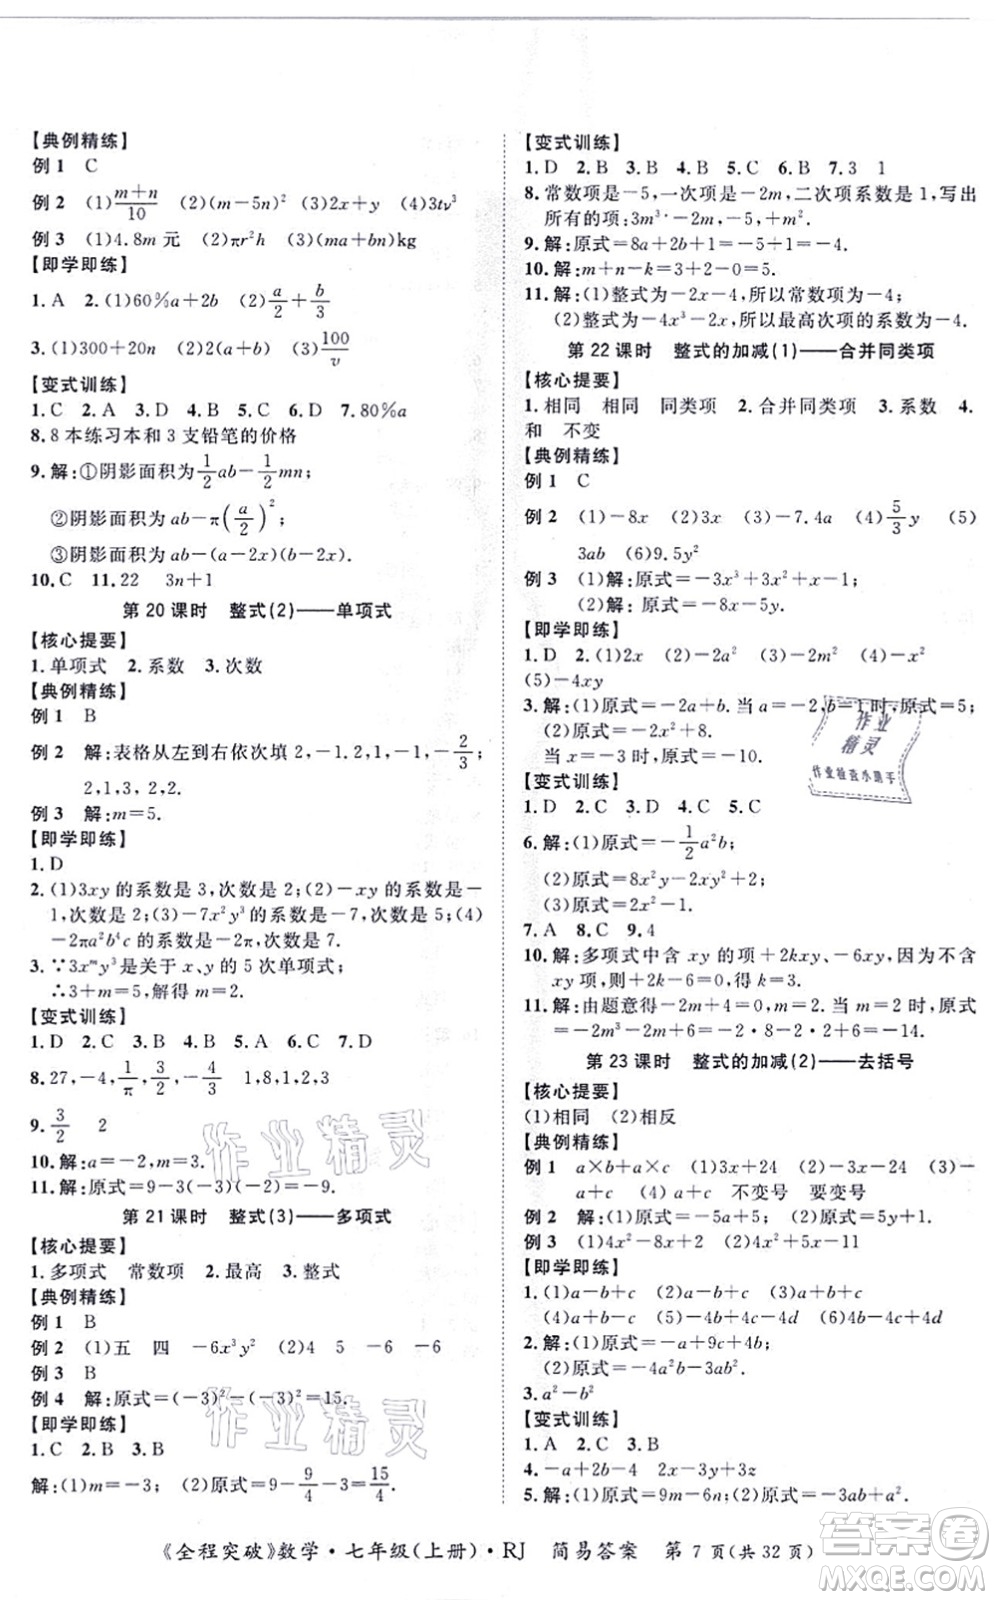 【典例精练】
例 1 C
例 2 (1)(m+n)/10 (2)(m－5n)² (3)2x＋y (4)3tv³
例 3 (1)4.8m 元 (2)πr²h (3)(ma＋bn)kg
【即学即练】
1. A 2.(1)60%a＋2b (2)a/2＋b/3
3.(1)300＋20n (2)6x² (3)100/v
【变式训练】
1. C 2. A 3. D 4. C 5. D 6. D 7. 80%a
8. 8 本练习本和 3 支铅笔的价格
9. 解:①阴影面积为 1/2 ab－1/2 mn;
②阴影面积为 ab－π(a/2)²;
③阴影面积为 ab－(a－2x)(b－2x).
10. C 11. 22 3n＋1
第 20 课时 整式(2)——单项式
【核心提要】
1. 单项式 2. 系数 3. 次数
【典例精练】
例 1 B
例 2 解:表格从左到右依次填 2,－1.2,1,－1,－2/3;
2,1,3,2,2.
例 3 解:m＝5.
【即学即练】
1. D
2.(1)3xy 的系数是 3,次数是 2;(2)－xy 的系数是－
1,次数是 2;(3)－7x²y³ 的系数是－7,次数是 5;(4)
－2πa²b⁴c 的系数是－2π,次数是 7.
3. ∵3xᵐy³是关于 x、y 的 5 次单项式
∴3＋m＝5,解得 m＝2.
【变式训练】
1. D 2. C 3. C 4. A 5. D 6. D 7. C
8. 27,－4,1/π,3/2,－4/3 1,8,1,2,3
9. 3/2 2
10. 解:a＝－2,m＝3.
11. 解:原式＝9－3(－2)＝9＋6＝15.
第 21 课时 整式(3)——多项式
【核心提要】
1. 多项式 常数项 2. 最高 3. 整式
【典例精练】
例 1 B
例 2 (1)五 四 －6x³y² (2)4 5 －6 －6
例 3 B
例 4 解:原式＝(－3)²－2(－3)＝15.
【即学即练】
1. C 2. B 3. B
解:(1)m＝－3; (2)原式＝9－9/4－3＝15/4.
【变式训练】
1. D 2. B 3. B 4. B 5. B 6. B 7. 3 1
8. 常数项是－5,一次项是－2m,二次项系数是 1,写出
所有的项:3m³·－2m,－5,＋m².
9. 解:原式＝8a＋2b＋1＝－5＋1＝－4.
10. 解:m＋n－k＝3＋2－0＝5.
11. 解:(1)整式为－2x－4,所以常数项为－4;
(2)整式为－4x³－2x,所以最高次项的系数为－4.
第 22 课时 整式的加减(1)——合并同类项
【核心提要】
1. 相同 相同 同类项 2. 合并同类项 3. 系数 4.
和 不变
【典例精练】
例 1 C
例 2 (1)－8x (2)3x (3)－7.4a (4)5/3 y (5)
3ab (6)9.5y²
例 3 (1)解:原式＝－3x³＋3x²＋x－1.
(2)解:原式＝－8x－5y.
【即学即练】
1. D 2.(1)2x (2)－2a² (3)－2m² (4)－x²
(5)－4xy
3. 解:(1)原式＝－2a＋b. 当 a＝－2,b＝1 时,原式＝5;
(2)原式＝－2x²＋7x－2.
当 x＝－3 时,原式＝－41.
【变式训练】
1. D 2. C 3. C 4. A 5. C
6. 解:(1)原式＝－1/2 a²b;
(2)原式＝8a²－a.
7. A 8. C 9. 4
10. 解:多项式中含 xy 的项有＋2kxy,－6xy,不含
xy 项,则＋2k－6＝0,k＝3.
11. 解:由题意得－2m＋4＝0,m＝2. 当 m＝2 时,原式
＝－2m³－2m＋6＝－2·8－2·2＋6＝－14.
第 23 课时 整式的加减(2)——去括号
【核心提要】
(1)相同 (2)相反
【典例精练】
例 1 a×b＋a×c (1)3x＋24 (2)－3x－24 (3)－
3x＋24 (4)3x－24 不变号 要变号
例 2 解:(1)原式＝－5a＋5 (2)原式＝5y＋1.
例 3 (1)4x²－8x－7 (2)4x²＋5x－11
【即学即练】
1.(1)a－b＋c (2)a－b＋c (3)－a＋b－c
(4)a＋b＋c (5)－4b＋4c－4d (6)－4b－4c＋4d
2. 解:(1)原式＝－a＋9c＋4b;
(2)原式＝－8a²b－3ab².
3. a²－b²
【变式训练】
1. A 2. C 3. B
4. －a＋b－c －2x－3y＋3z
5. 解:(1)原式＝9m－6n;(2)原式＝－3ab＋a².
《全程突破》数学·七年级(上册)·RJ 简易答案 第 7 页(共 32 页)
作业
精灵
作业检查小助手
作业精灵
作业精灵
答案圈
MXQE.COM